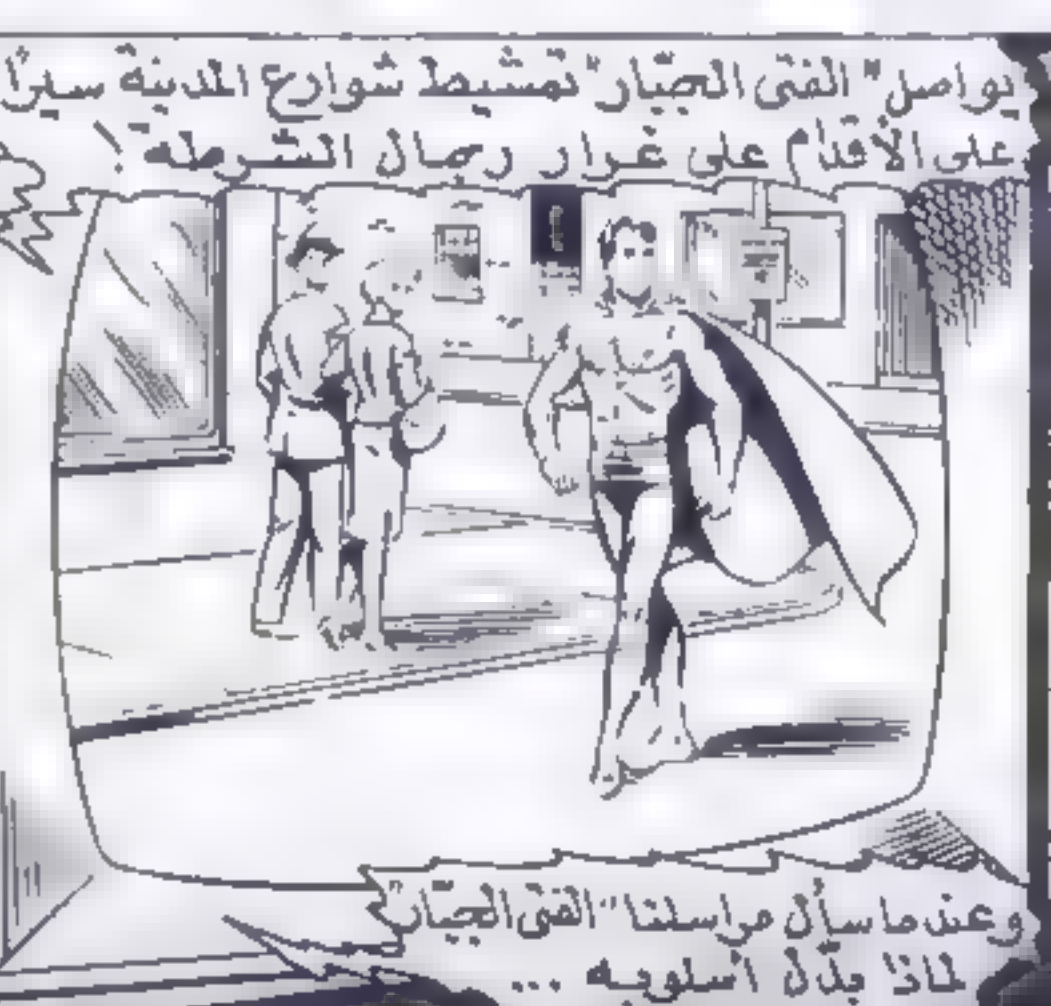 يواصل "الفتى الجبّار" تمشيط شوارع المدينة سيرًا
على الأقدام على غرار رجال الشرطه !
وعندما سأل مراسلنا "الفتى الجبّار"
لماذا بدّل أسلوبه ...